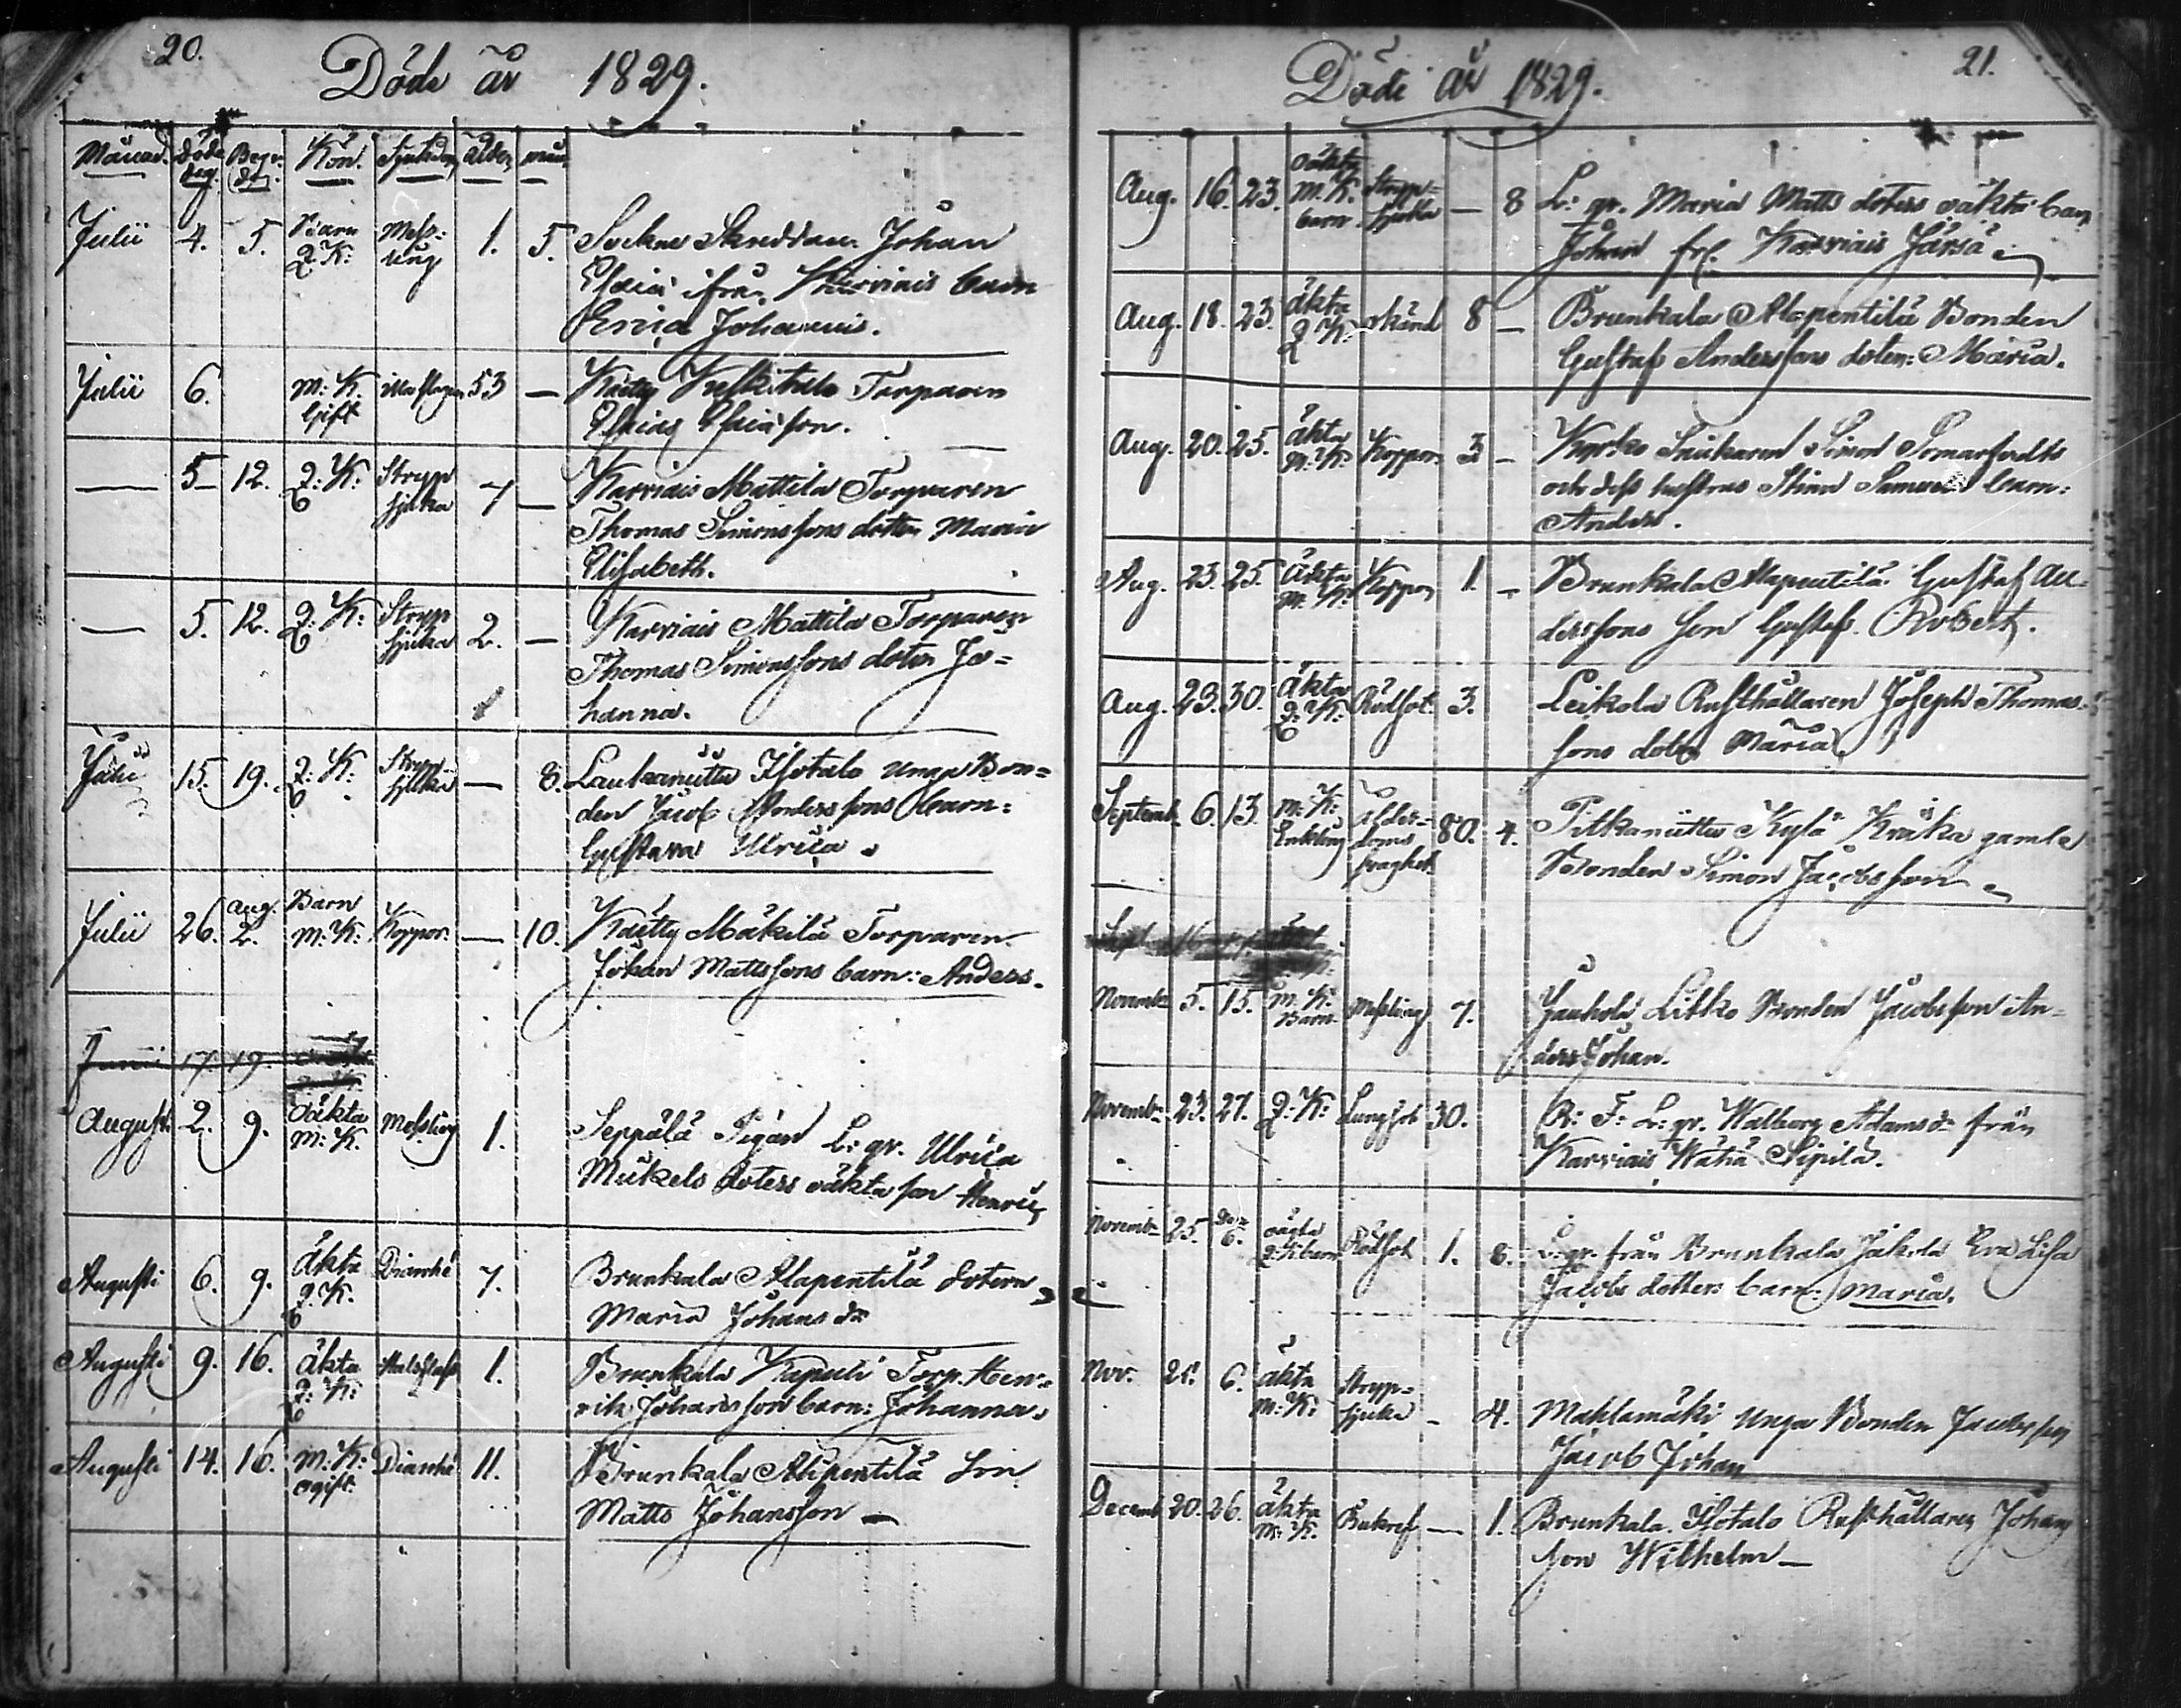 20.
Döde år 1829.
Månad. Döde dag. Begr. d. Kön. Sjukdom ålder mån.
Julii 4. 5. Barn Q.K. Mess-ling 1. 5. Sockne Skreddaren Johan
Esaiæ ifrån Karviais barn
Erica Johannis.
Julii 6. M:K. Gift 53 — Kaitty Torparen
Esaias Esaiæson.
— 5 12. Q:K: Stryp sjuka 7 — Karviais Mattila Torparen
Thomas Simonssons dotter Maria
Elisabeth.
— 5. 12. Q:K: Stryp sjuka 2. — Karviais Mattila Torparen
Thomas Simonssons doter Jo=
hanna.
Julii 15. 19. Q:K: Stryp sjuka — 8. Isotalo unge Bon=
den Jacob Anderssons barn:
Gustava Ulrica.
Julii 26. Aug. 2. Barn M:K: Koppor. — 10. Kaitty Mäkilä Torparen
Johan Mattssons barn: Anders.
Junii 17. 19.
Augusti 2. 9. oäkta M:K. Messling 1. Seppälä Pigan L: qv. Ulrica
Mickels doters oäkta son Henric
Augusti 6. 9. äkta Q.K. Diarrhé 7. Brunkala Alapentilä dotern
Maria Johans dr
Augusti 9. 16. äkta Q:K: 1. Brunkala Torp. Hen=
rik Johanssons barn: Johanna.
Augusti 14. 16. M:K: ogift Diarrhé 11. Brunkala Alipentilä Son
Matts Johansson —
Döde år 1829.
21.
Aug. 16. 23. oäkta M:K. barn Stryp= sjuka — 8 L: qv. Maria Matts doters oäkta barn
Johan fr. Karviais Järsä
Aug. 18. 23. äkta Q K: okänd 8 — Brunkala Alapentilä Bonden
Gustaf Anderssons doter: Maria.
Aug. 20. 25. äkta M:K: Koppor. 3 — Kyrko Snickaren Simon
och dess hustrus Stina Samuels barn:
Anders.
Aug. 23. 25. äkta M:K: Koppor 1. — Brunkala Alapentilä Gustaf An-
derssons son Gustaf Robert.
Aug. 23. 30. äkta Q:K: Rödsot 3. Leikola Rusthållaren Joseph Thomas-
sons doter Maria
Septemb. 6. 13. M:K: Enkling ålder= doms svaghet 80. 4. Pitkaniittu Kylä Kräka gamle
Bonden Simon Jacobsson
Sept
Novemb. 5. 15. M:K: Barn Messling 7. Jauhola Litko Bonden Jacobsson An=
ders Johan.
Novemb. 23. 27. Q:K: Lungsot 30. R: F: L: qv. Walborg Adams dr från
Karviais Wähä Sipilä.
Novemb. 25. Dec. 6. oägta Q:K: barn Rödsot 1. 8. L: qv. från Brunkala Jäkola Eva Lisa
Jacobs dotters barn: Maria.
Nov. 6. äkta M:K: Stryp= sjuka — 4. Mahlamäki unga Bonden Jacobsson
Jacob Johan
Decemb 20. 26. äkta M:K. — 1. Brunkala Isotalo Rusthållaren Johans
son Wilhelm —